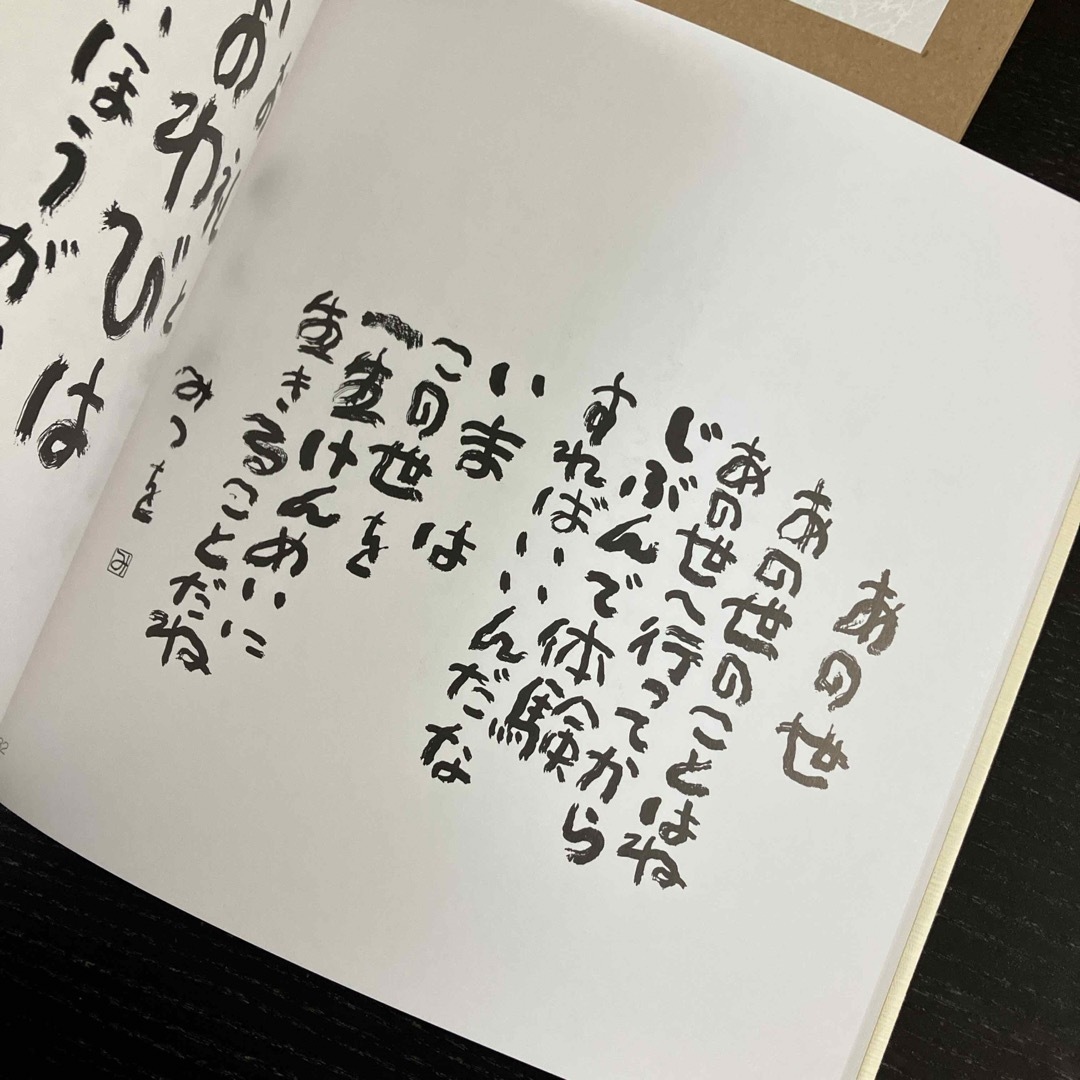 あの世
あの世のことはね
あの世へ行ってから
じぶんで体験
すればいいんだな
いまは
この世を
一生けんめいに
生きることだね
みつを
み
ほうが